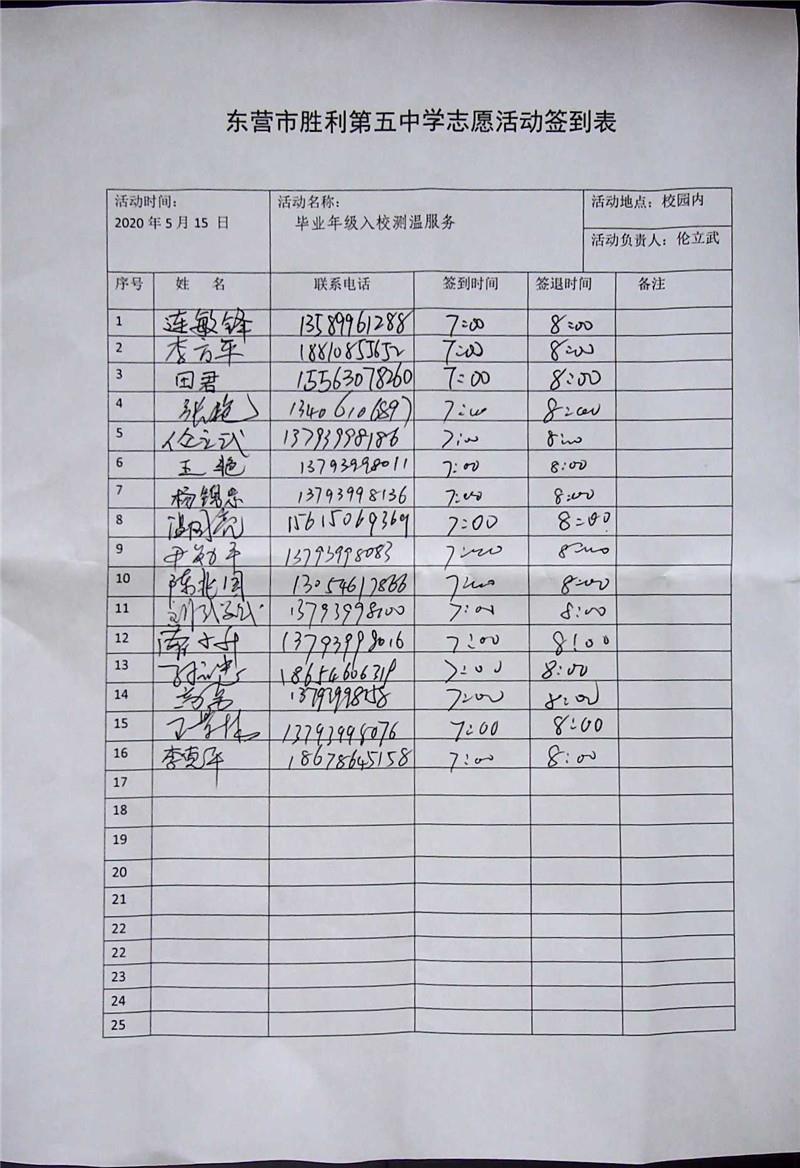 东营市胜利第五中学志愿活动签到表
活动时间： 活动名称： 活动地点：校园内
2020 年 5 月 15 日 毕业年级入校测温服务
活动负责人：伦立武
序号 姓 名 联系电话 签到时间 签退时间 备注
1 连敏锋 13589961288 7:00 8:00
2 李方军 18810855652 7:00 8:00
3 田君 15563078260 7:00 8:00
4 张艳 7:00 8:00
5 伦立武 13793998186 7:00 8:00
6 王艳 13793998011 7:00 8:00
7 杨锦忠 13793998136 7:00 8:00
8 15615069369 7:00 8:00
9 13793998083 7:00 8:00
10 陈兆国 13054617866 7:00 8:00
11 13793998100 7:00 8:00
12 13793998016 7:00 8:00
13 18654606319 7:00 8:00
14 13793998258 7:00 8:00
15 13793998076 7:00 8:00
16 李克军 18678645158 7:00 8:00
17
18
19
20
21
22
22
23
24
25